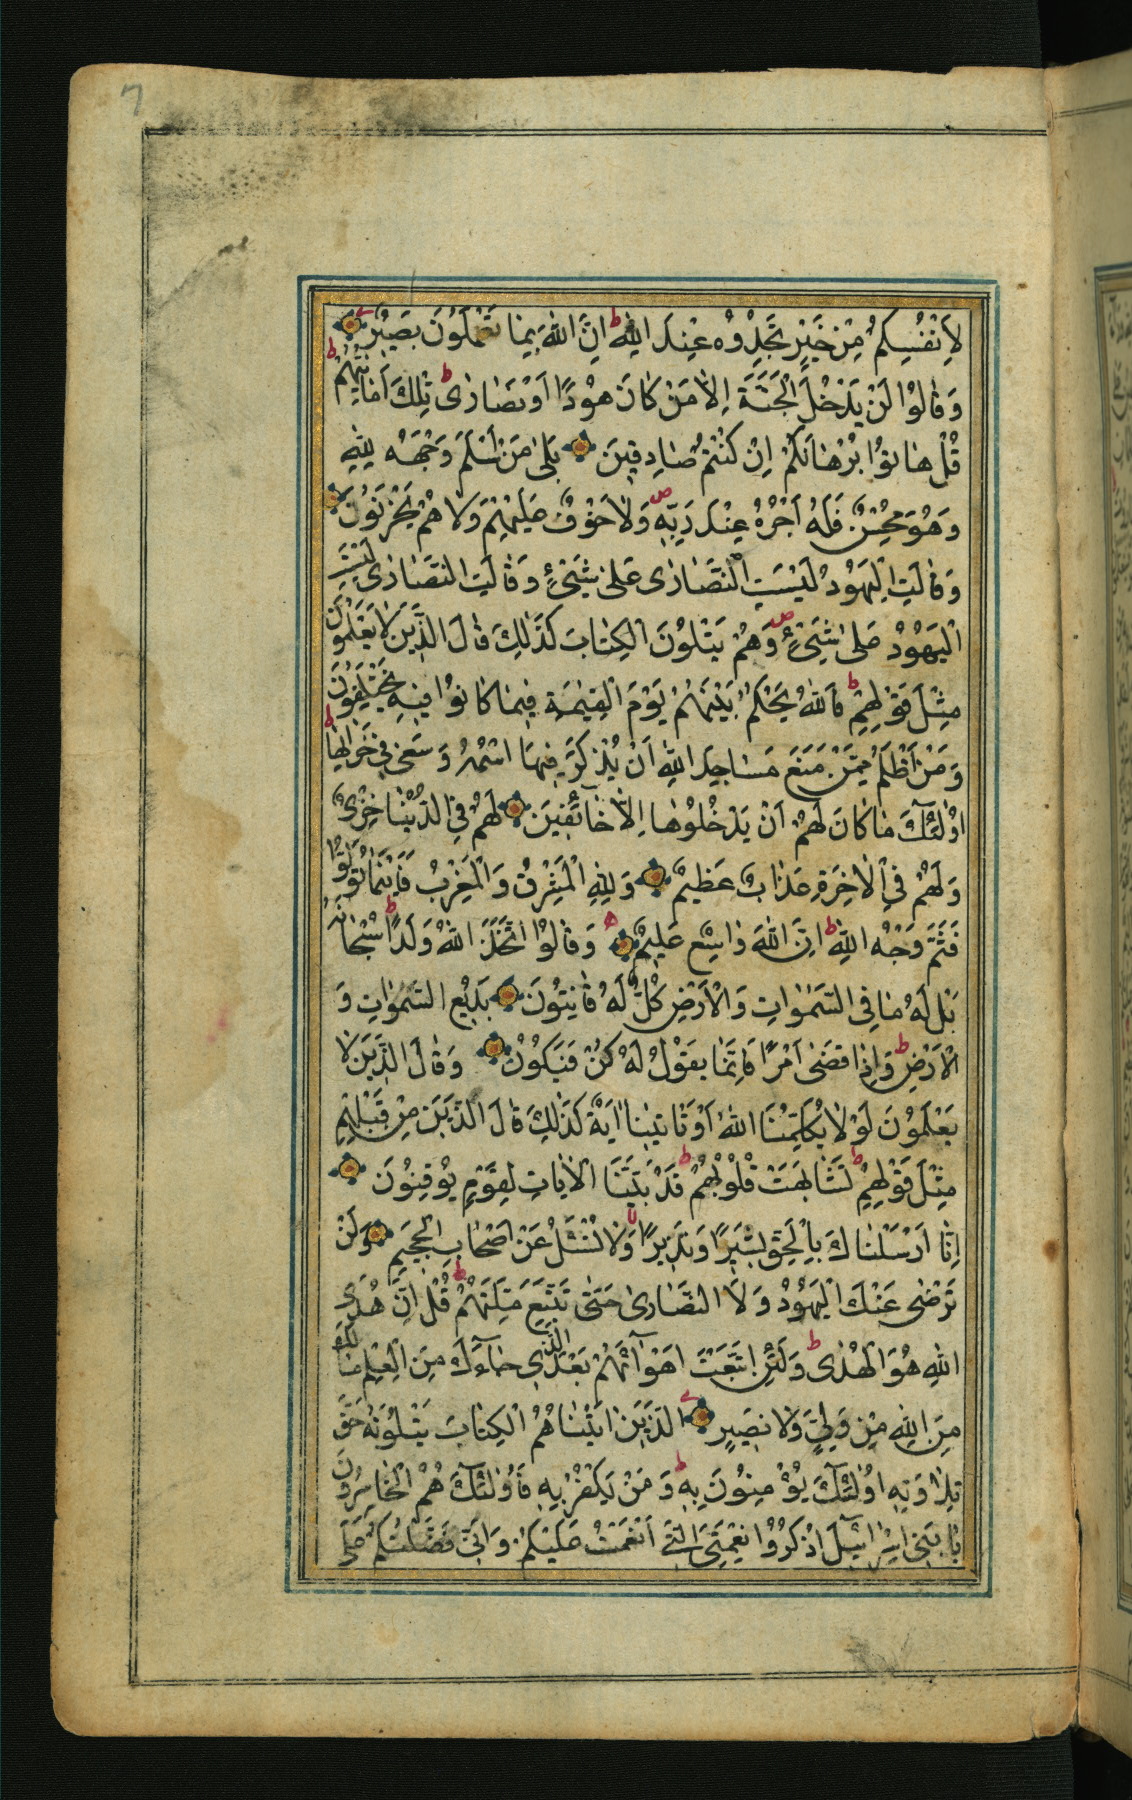 7
لِاَنْفُسِكُمْ مِنْ خَيْرٍ تَجِدُوهُ عِنْدَ اللّٰهِ ط اِنَّ اللّٰهَ بِمَا تَعْمَلُونَ بَصِيرٌ
وَقَالُوا لَنْ يَدْخُلَ الْجَنَّةَ اِلَّا مَنْ كَانَ هُودًا اَوْ نَصَارٰى ط تِلْكَ اَمَانِيُّهُمْ ط
قُلْ هَاتُوا بُرْهَانَكُمْ اِنْ كُنْتُمْ صَادِقِينَ بَلٰى مَنْ اَسْلَمَ وَجْهَهُ لِلّٰهِ
وَهُوَ مُحْسِنٌ فَلَهُ اَجْرُهُ عِنْدَ رَبِّهِ ص وَلَا خَوْفٌ عَلَيْهِمْ وَلَا هُمْ يَحْزَنُونَ
وَقَالَتِ الْيَهُودُ لَيْسَتِ النَّصَارٰى عَلٰى شَيْءٍ وَقَالَتِ النَّصَارٰى لَيْسَتِ
الْيَهُودُ عَلٰى شَيْءٍ ص وَهُمْ يَتْلُونَ الْكِتَابَ كَذٰلِكَ قَالَ الَّذِينَ لَا يَعْلَمُونَ
مِثْلَ قَوْلِهِمْ ط فَاللّٰهُ يَحْكُمُ بَيْنَهُمْ يَوْمَ الْقِيٰمَةِ فِيمَا كَانُوا فِيهِ يَخْتَلِفُونَ
وَمَنْ اَظْلَمُ مِمَّنْ مَنَعَ مَسَاجِدَ اللّٰهِ اَنْ يُذْكَرَ فِيهَا اسْمُهُ وَسَعٰى فِي خَرَابِهَا ط
اُولٰئِكَ مَا كَانَ لَهُمْ اَنْ يَدْخُلُوهَا اِلَّا خَائِفِينَ لَهُمْ فِي الدُّنْيَا خِزْيٌ
وَلَهُمْ فِي الْاٰخِرَةِ عَذَابٌ عَظِيمٌ وَلِلّٰهِ الْمَشْرِقُ وَالْمَغْرِبُ فَاَيْنَمَا تُوَلُّوا
فَثَمَّ وَجْهُ اللّٰهِ ط اِنَّ اللّٰهَ وَاسِعٌ عَلِيمٌ وَقَالُوا اتَّخَذَ اللّٰهُ وَلَدًا ط سُبْحَانَهُ
بَلْ لَهُ مَا فِي السَّمٰوَاتِ وَالْاَرْضِ كُلٌّ لَهُ قَانِتُونَ بَدِيعُ السَّمٰوَاتِ وَ
الْاَرْضِ ط وَاِذَا قَضٰى اَمْرًا فَاِنَّمَا يَقُولُ لَهُ كُنْ فَيَكُونُ وَقَالَ الَّذِينَ لَا
يَعْلَمُونَ لَوْلَا يُكَلِّمُنَا اللّٰهُ اَوْ تَاْتِينَا اٰيَةٌ كَذٰلِكَ قَالَ الَّذِينَ مِنْ قَبْلِهِمْ
مِثْلَ قَوْلِهِمْ ط تَشَابَهَتْ قُلُوبُهُمْ ط قَدْ بَيَّنَّا الْاٰيَاتِ لِقَوْمٍ يُوقِنُونَ
اِنَّا اَرْسَلْنَاكَ بِالْحَقِّ بَشِيرًا وَنَذِيرًا وَلَا تُسْئَلُ عَنْ اَصْحَابِ الْجَحِيمِ وَلَنْ
تَرْضٰى عَنْكَ الْيَهُودُ وَلَا النَّصَارٰى حَتّٰى تَتَّبِعَ مِلَّتَهُمْ ط قُلْ اِنَّ هُدَى
اللّٰهِ هُوَ الْهُدٰى ط وَلَئِنِ اتَّبَعْتَ اَهْوَائَهُمْ بَعْدَ الَّذِي جَاءَكَ مِنَ الْعِلْمِ مَا لَكَ
مِنَ اللّٰهِ مِنْ وَلِيٍّ وَلَا نَصِيرٍ الَّذِينَ اٰتَيْنَاهُمُ الْكِتَابَ يَتْلُونَهُ حَقَّ
تِلَاوَتِهِ اُولٰئِكَ يُؤْمِنُونَ بِهِ ط وَمَنْ يَكْفُرْ بِهِ فَاُولٰئِكَ هُمُ الْخَاسِرُونَ
يَا بَنِي اِسْرَائِيلَ اذْكُرُوا نِعْمَتِيَ الَّتِي اَنْعَمْتُ عَلَيْكُمْ وَاَنِّي فَضَّلْتُكُمْ عَلَى